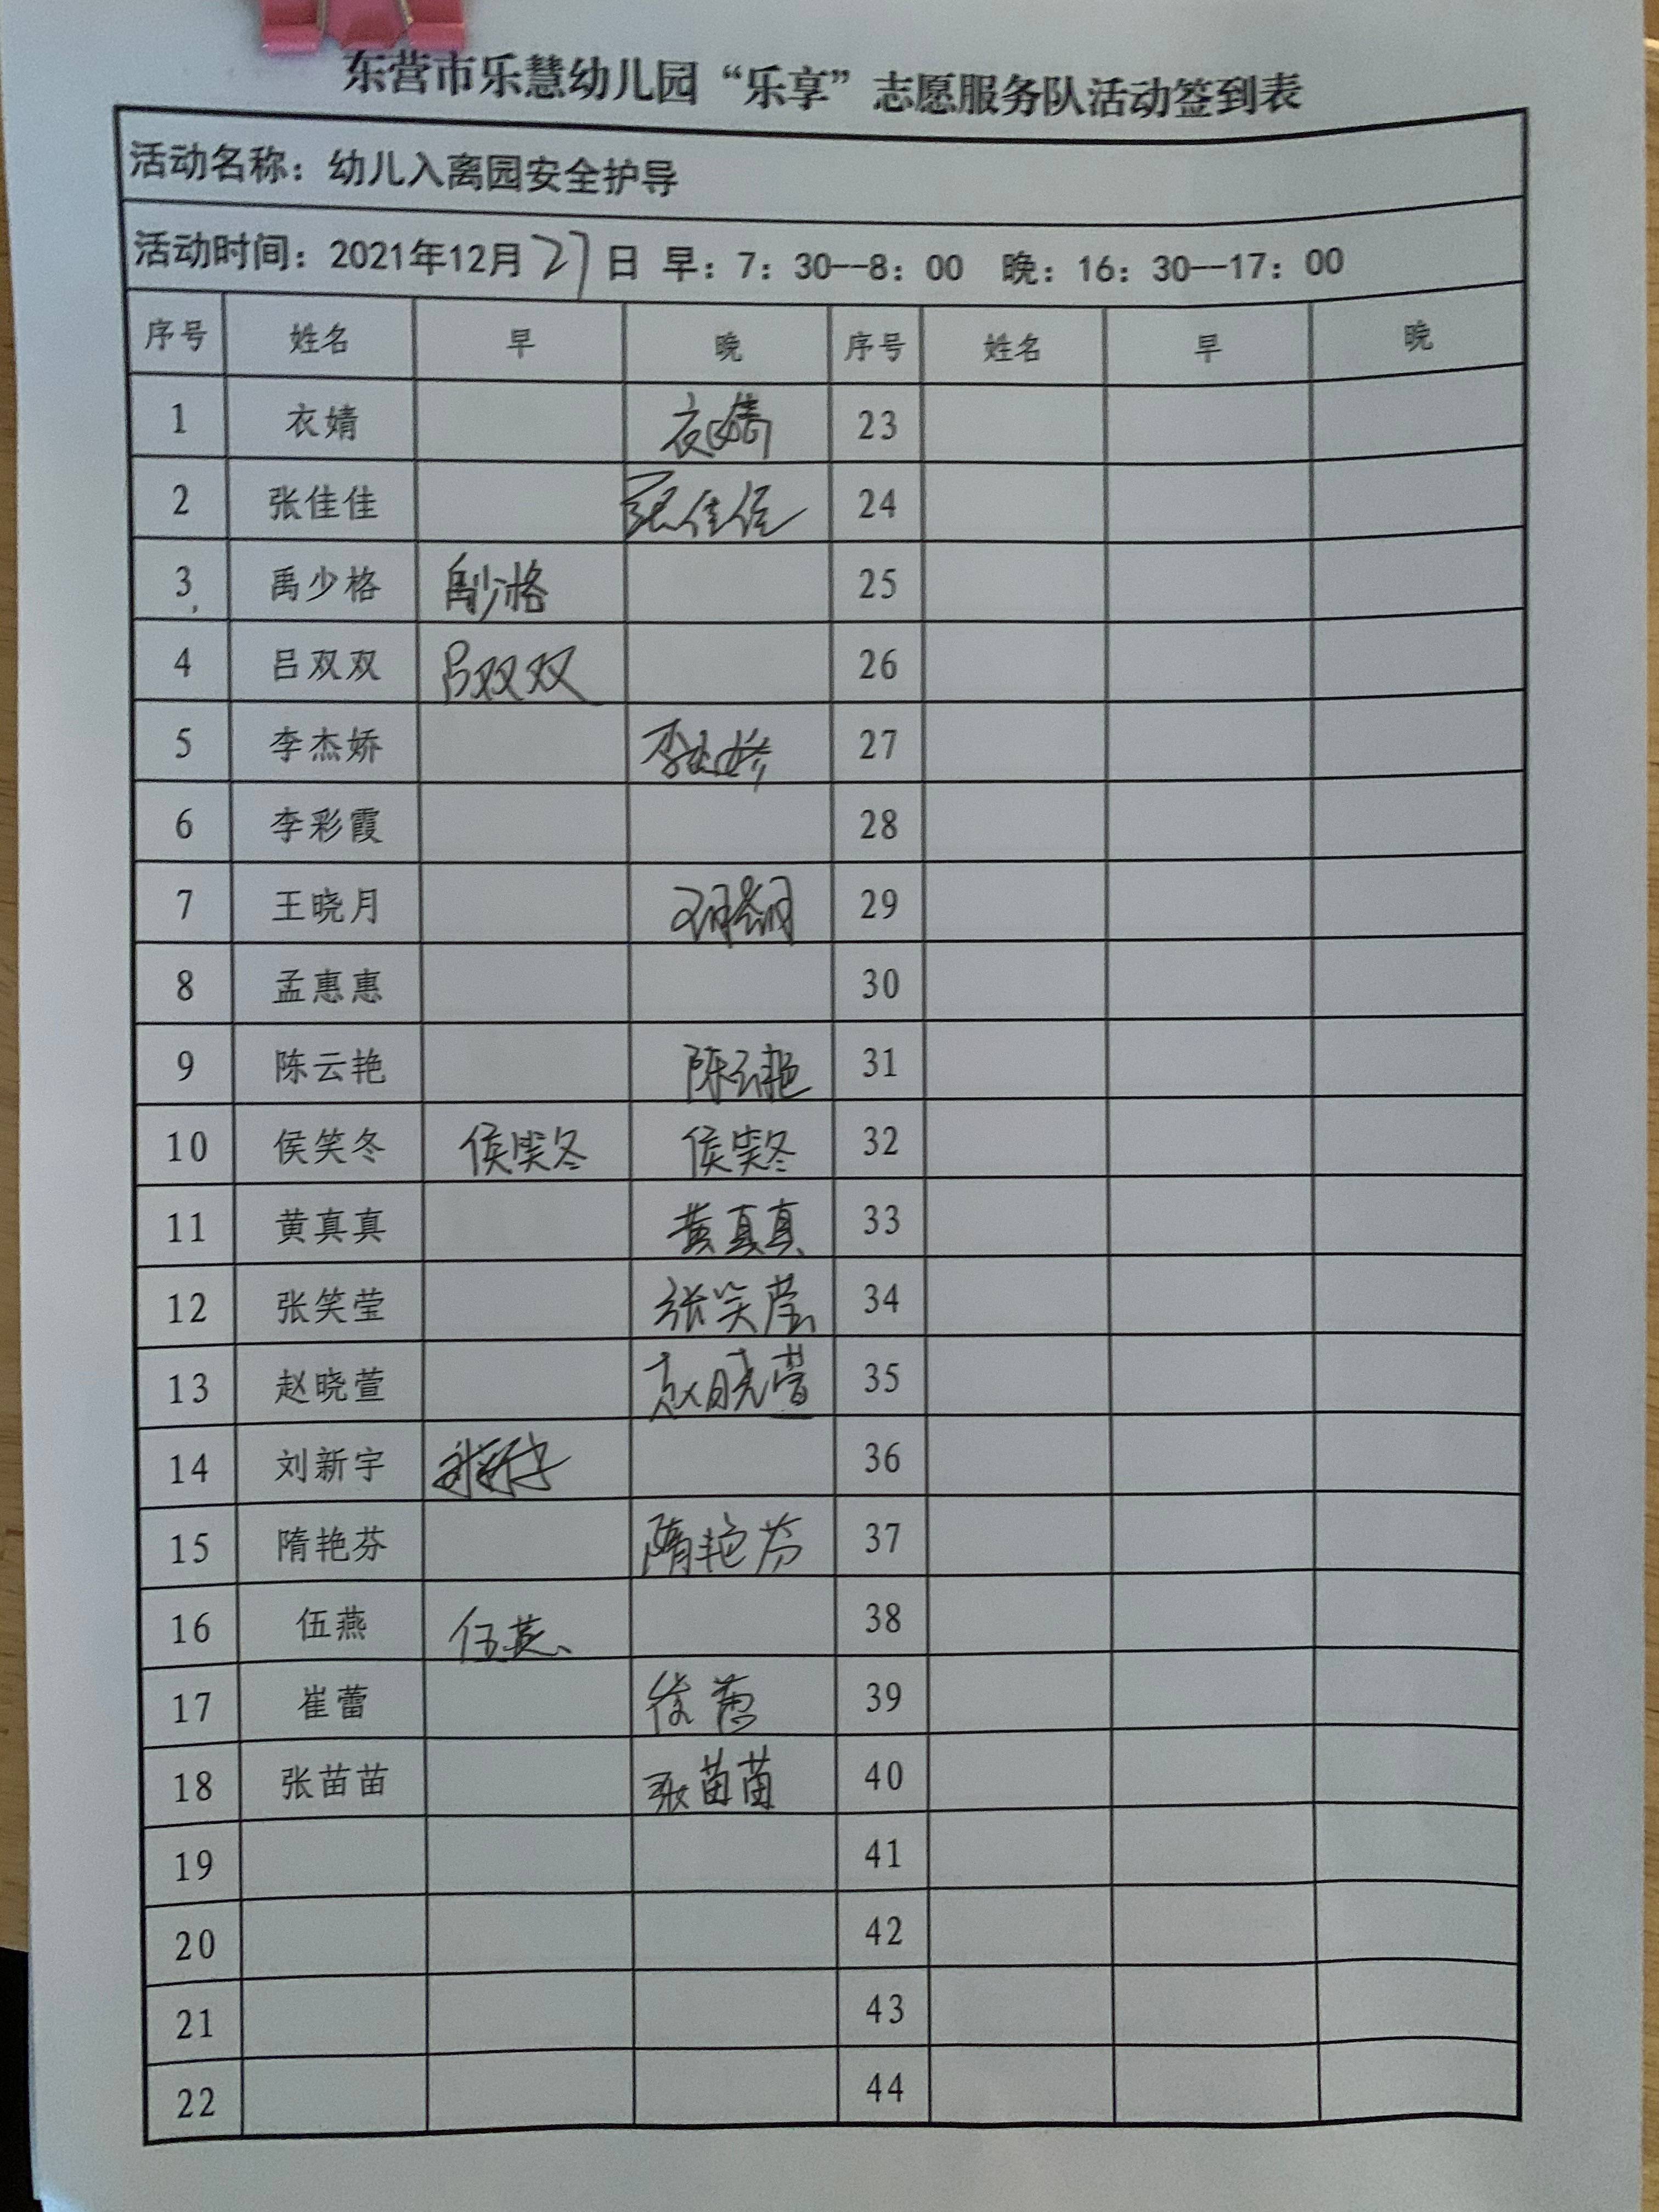 东营市乐慧幼儿园“乐享”志愿服务队活动签到表
活动名称：幼儿入离园安全护导
活动时间：2021年12月27日 早：7：30--8：00 晚：16：30--17：00
序号 姓名 早 晚 序号 姓名 早 晚
1 衣婧 衣婧 23
2 张佳佳 张佳佳 24
3 禹少格 禹少格 25
4 吕双双 吕双双 26
5 李杰娇 李杰娇 27
6 李彩霞 28
7 王晓月 29
8 孟惠惠 30
9 陈云艳 陈云艳 31
10 侯笑冬 侯笑冬 侯笑冬 32
11 黄真真 黄真真 33
12 张笑莹 张笑莹 34
13 赵晓萱 赵晓萱 35
14 刘新宇 刘新宇 36
15 隋艳芬 隋艳芬 37
16 伍燕 伍燕 38
17 崔蕾 39
18 张苗苗 张苗苗 40
19 41
20 42
21 43
22 44